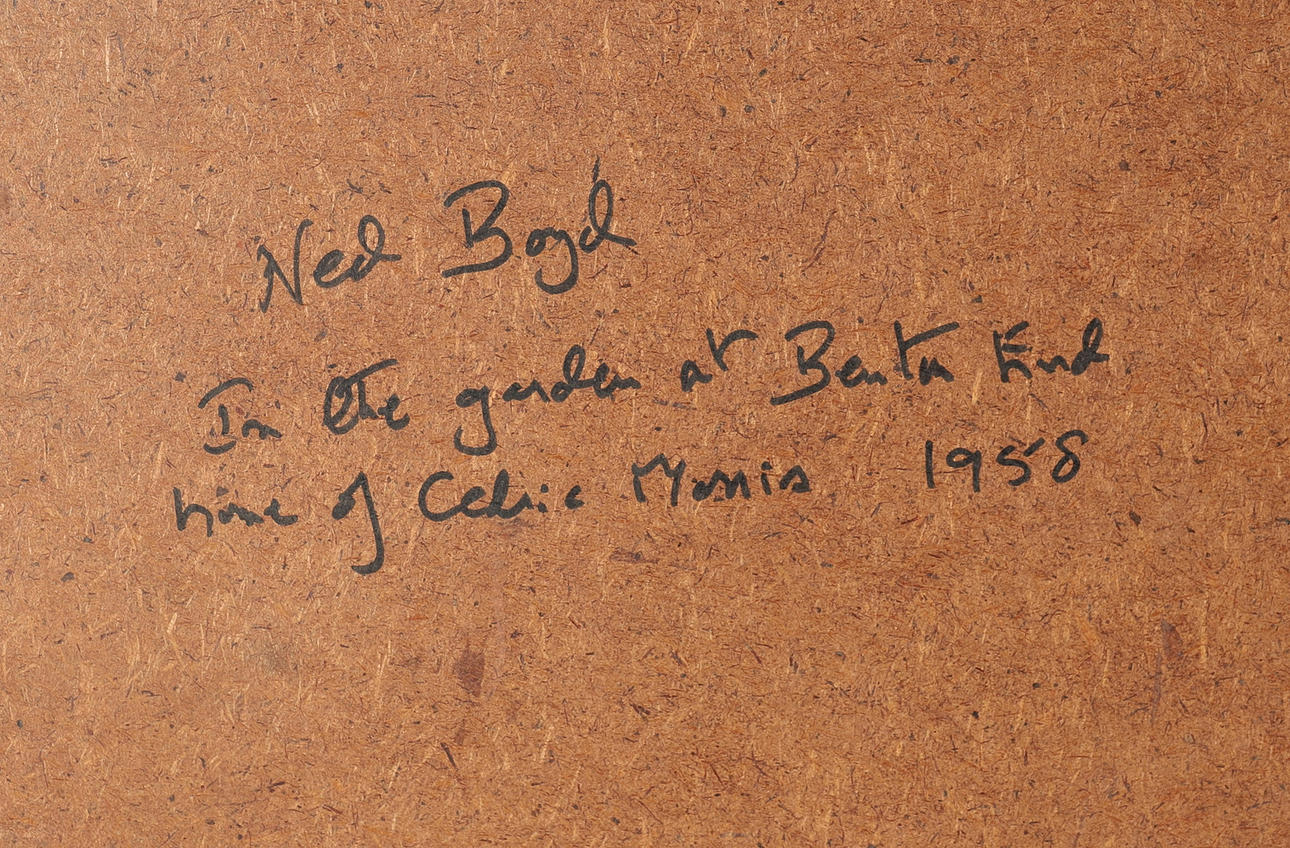 Ned Boyd
In the garden at Benton End
home of Cedric Morris 1958